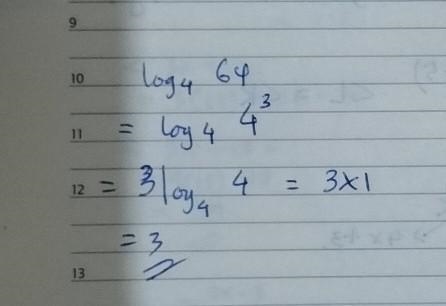 9
10 log₄ 64
11 = log₄ 4³
12 = 3 log₄ 4 = 3×1
= 3
13